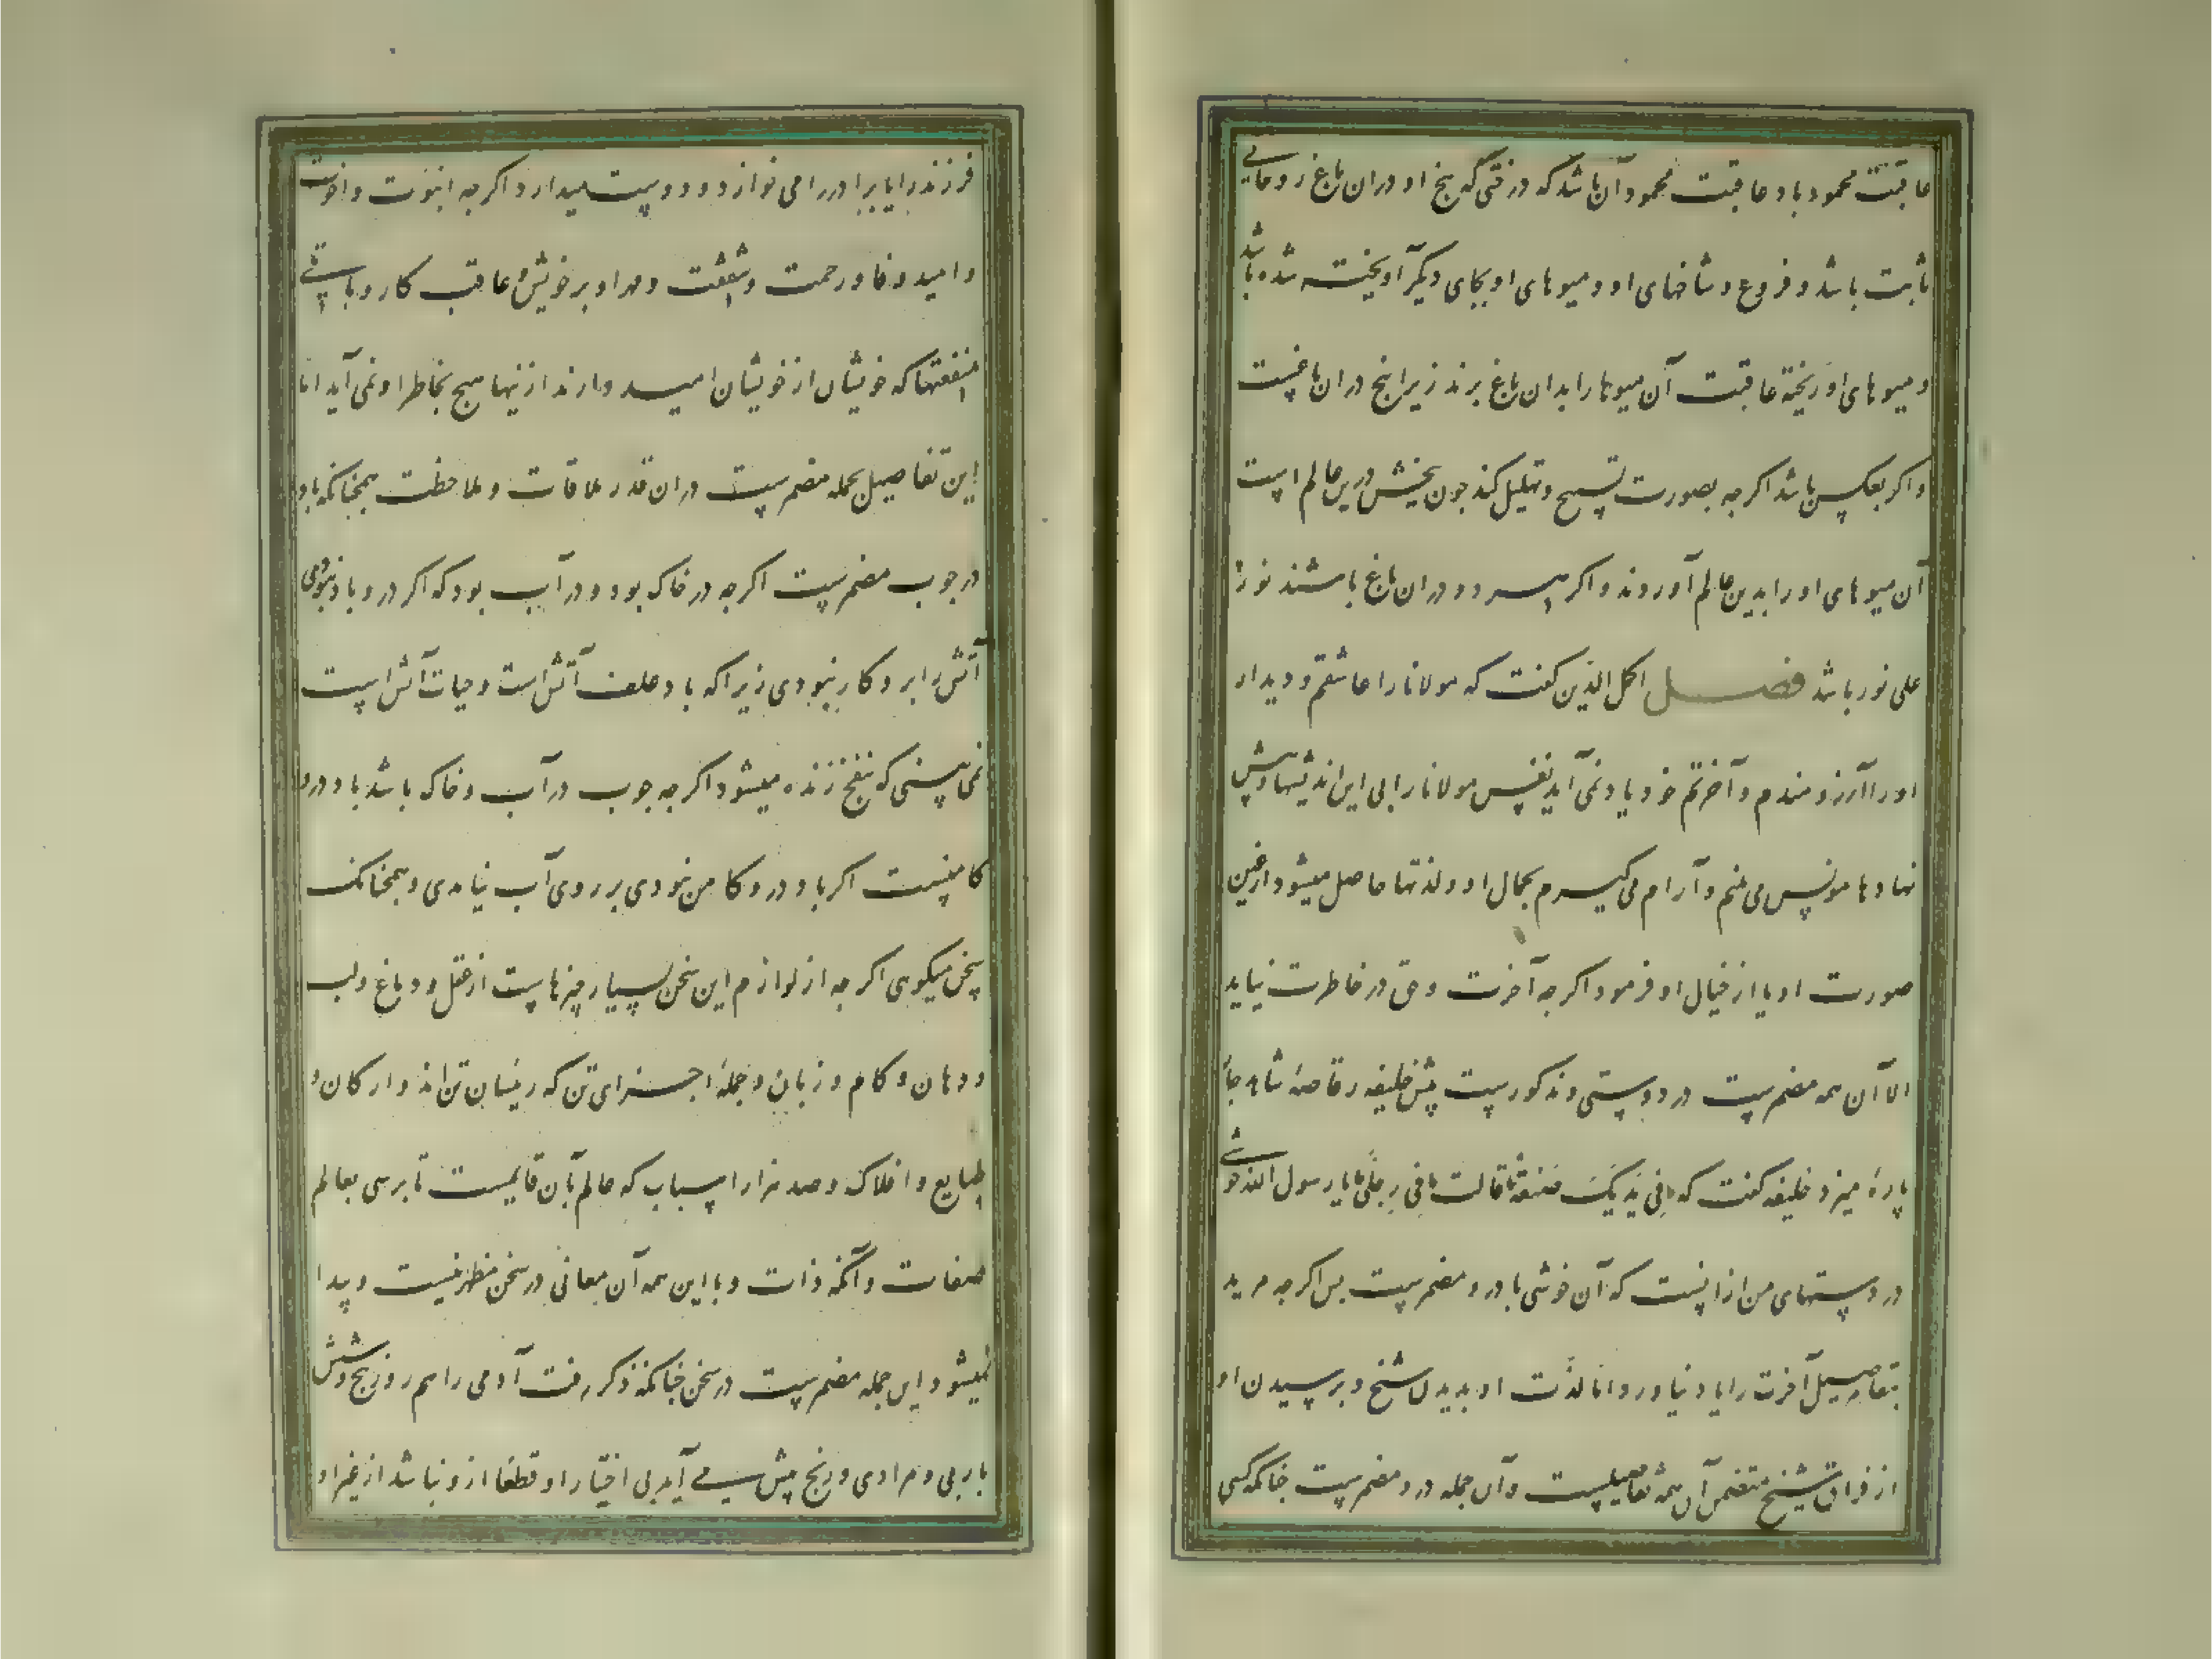 عاقبت محمود باد و عاقبت محمود آن باشد که درختی که بیخ او در ان باغ روحانی
ثابت باشد و فروع و شاخهای او و میوهای او بجای دیگر آویخته شده باشد
و میوهای او ریخته عاقبت آن میوها را بدان باغ برند زیرا بیخ در ان باغست
و اکر بعکس باشد اکرچه بصورت تسبیح و تهلیل کند چون بیخش درین عالم است
آن میوهای او را بدین عالم آوردند و اکر هر دو در ان باغ باشند نور
علی نور باشد فصل اکمل الدین کفت که مولانا را عاشقم و دیدار
او را آرزومندم و آخرتم خود یاد نمی آید نفس مولانا را بی این اندیشها و پیش
نهادها مونس می بینم و آرام می کیرم بجمال او و لذتها حاصل میشود از عین
صورت او یا از خیال او فرمود اکرچه آخرت و حق در خاطرت نیاید
الا آن همه مضمرست در دوستی و مذکورست پیش خلیفه رقاصهٔ شاهد چار
پارهٔ میزد خلیفه کفت که فی یدیک صنعة قالت فی رجلی یا رسول الله خوشی
در دستهای من ازانست که آن خوشی پا درو مضمرست پس اکرچه مرید
بتفاصیل آخرت را یاد نیاورد اما لذت او بدیدن شیخ و ترسیدن او
از فراق شیخ متضمن آن همه تفاصیلست و آن جمله درو مضمرست چنانکه کسی
فرزند را یا برادر را می نوازد و دوست میدارد اکرچه ابنوت و اخوت
و امید وفا و رحمت و شفقت و مهر او بر خویش و عاقبت کار و باقی
منفعتها که خویشان از خویشان امید دارند ازینها هیچ بخاطر او نمی آید اما
این تفاصیل بجمله مضمرست در ان قدر ملاقات و ملاحظت همچنانکه باد
در چوب مضمرست اکرچه در خاک بود و در آب بود که اکر درو باد نبودی
آتش را برو کار نبودی زیرا که باد علف آتش است و حیات آتش است
نمی بینی که بنفخ زنده میشود اکرچه چوب در آب و خاک باشد باد درو
کامنست اکر باد درو کامن نبودی بر روی آب نیامدی و همچنانک
سخن میکویی اکرچه از لوازم این سخن بسیار چیزهاست از عقل و دماغ و لب
و دهان و کام و زبان و جملهٔ اجزای تن که رئیسان تن اند و ارکان و
طبایع و افلاک و صد هزار اسباب که عالم بآن قایمست تا برسی بعالم
صفات و آنکه ذات و با این همه آن معانی در سخن مظهر نیست و پیدا
نمیشود این جمله مضمرست در سخن چنانکه ذکر رفت آدمی را هم روز پنج و شش
بار بی مرادی و رنج پیش می آید بی اختیار او قطعا ازو نباشد از غیر او